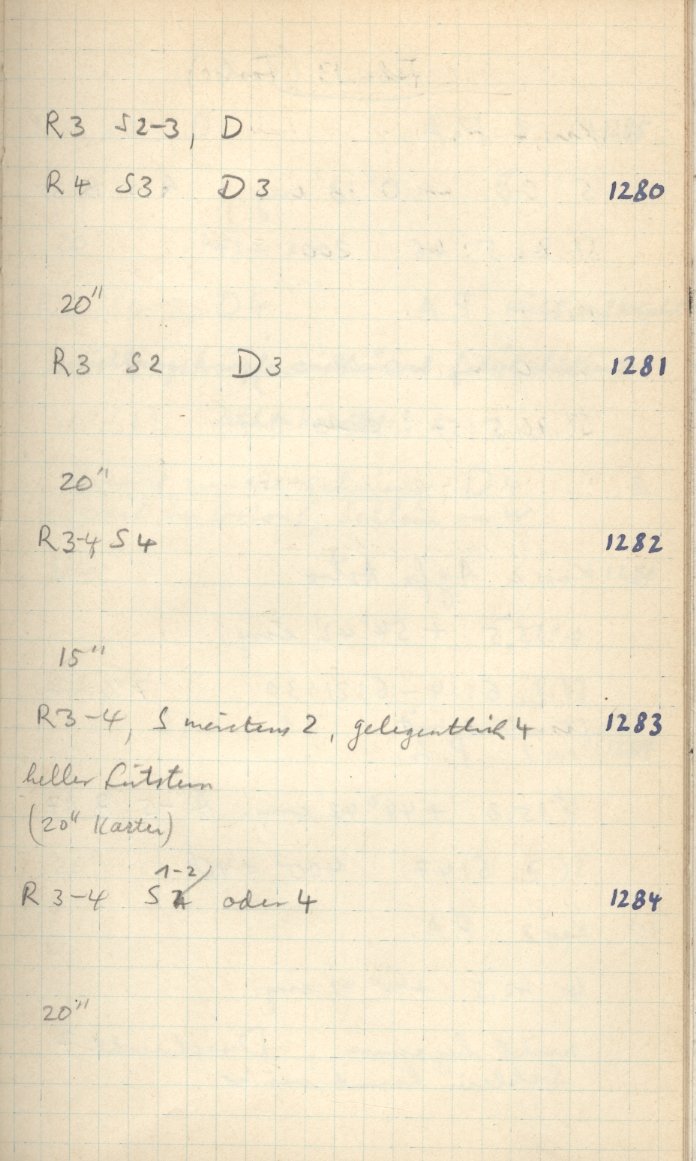 R3 S2-3, D
R4 S3 D3 1280
20"
R3 S2 D3 1281
20"
R3-4 S4 1282
15"
R3-4, S meistens 2, gelegentlich 4 1283
heller Leitstern
(20" Karten)
1-2
R3-4 S oder 4 1284
20"